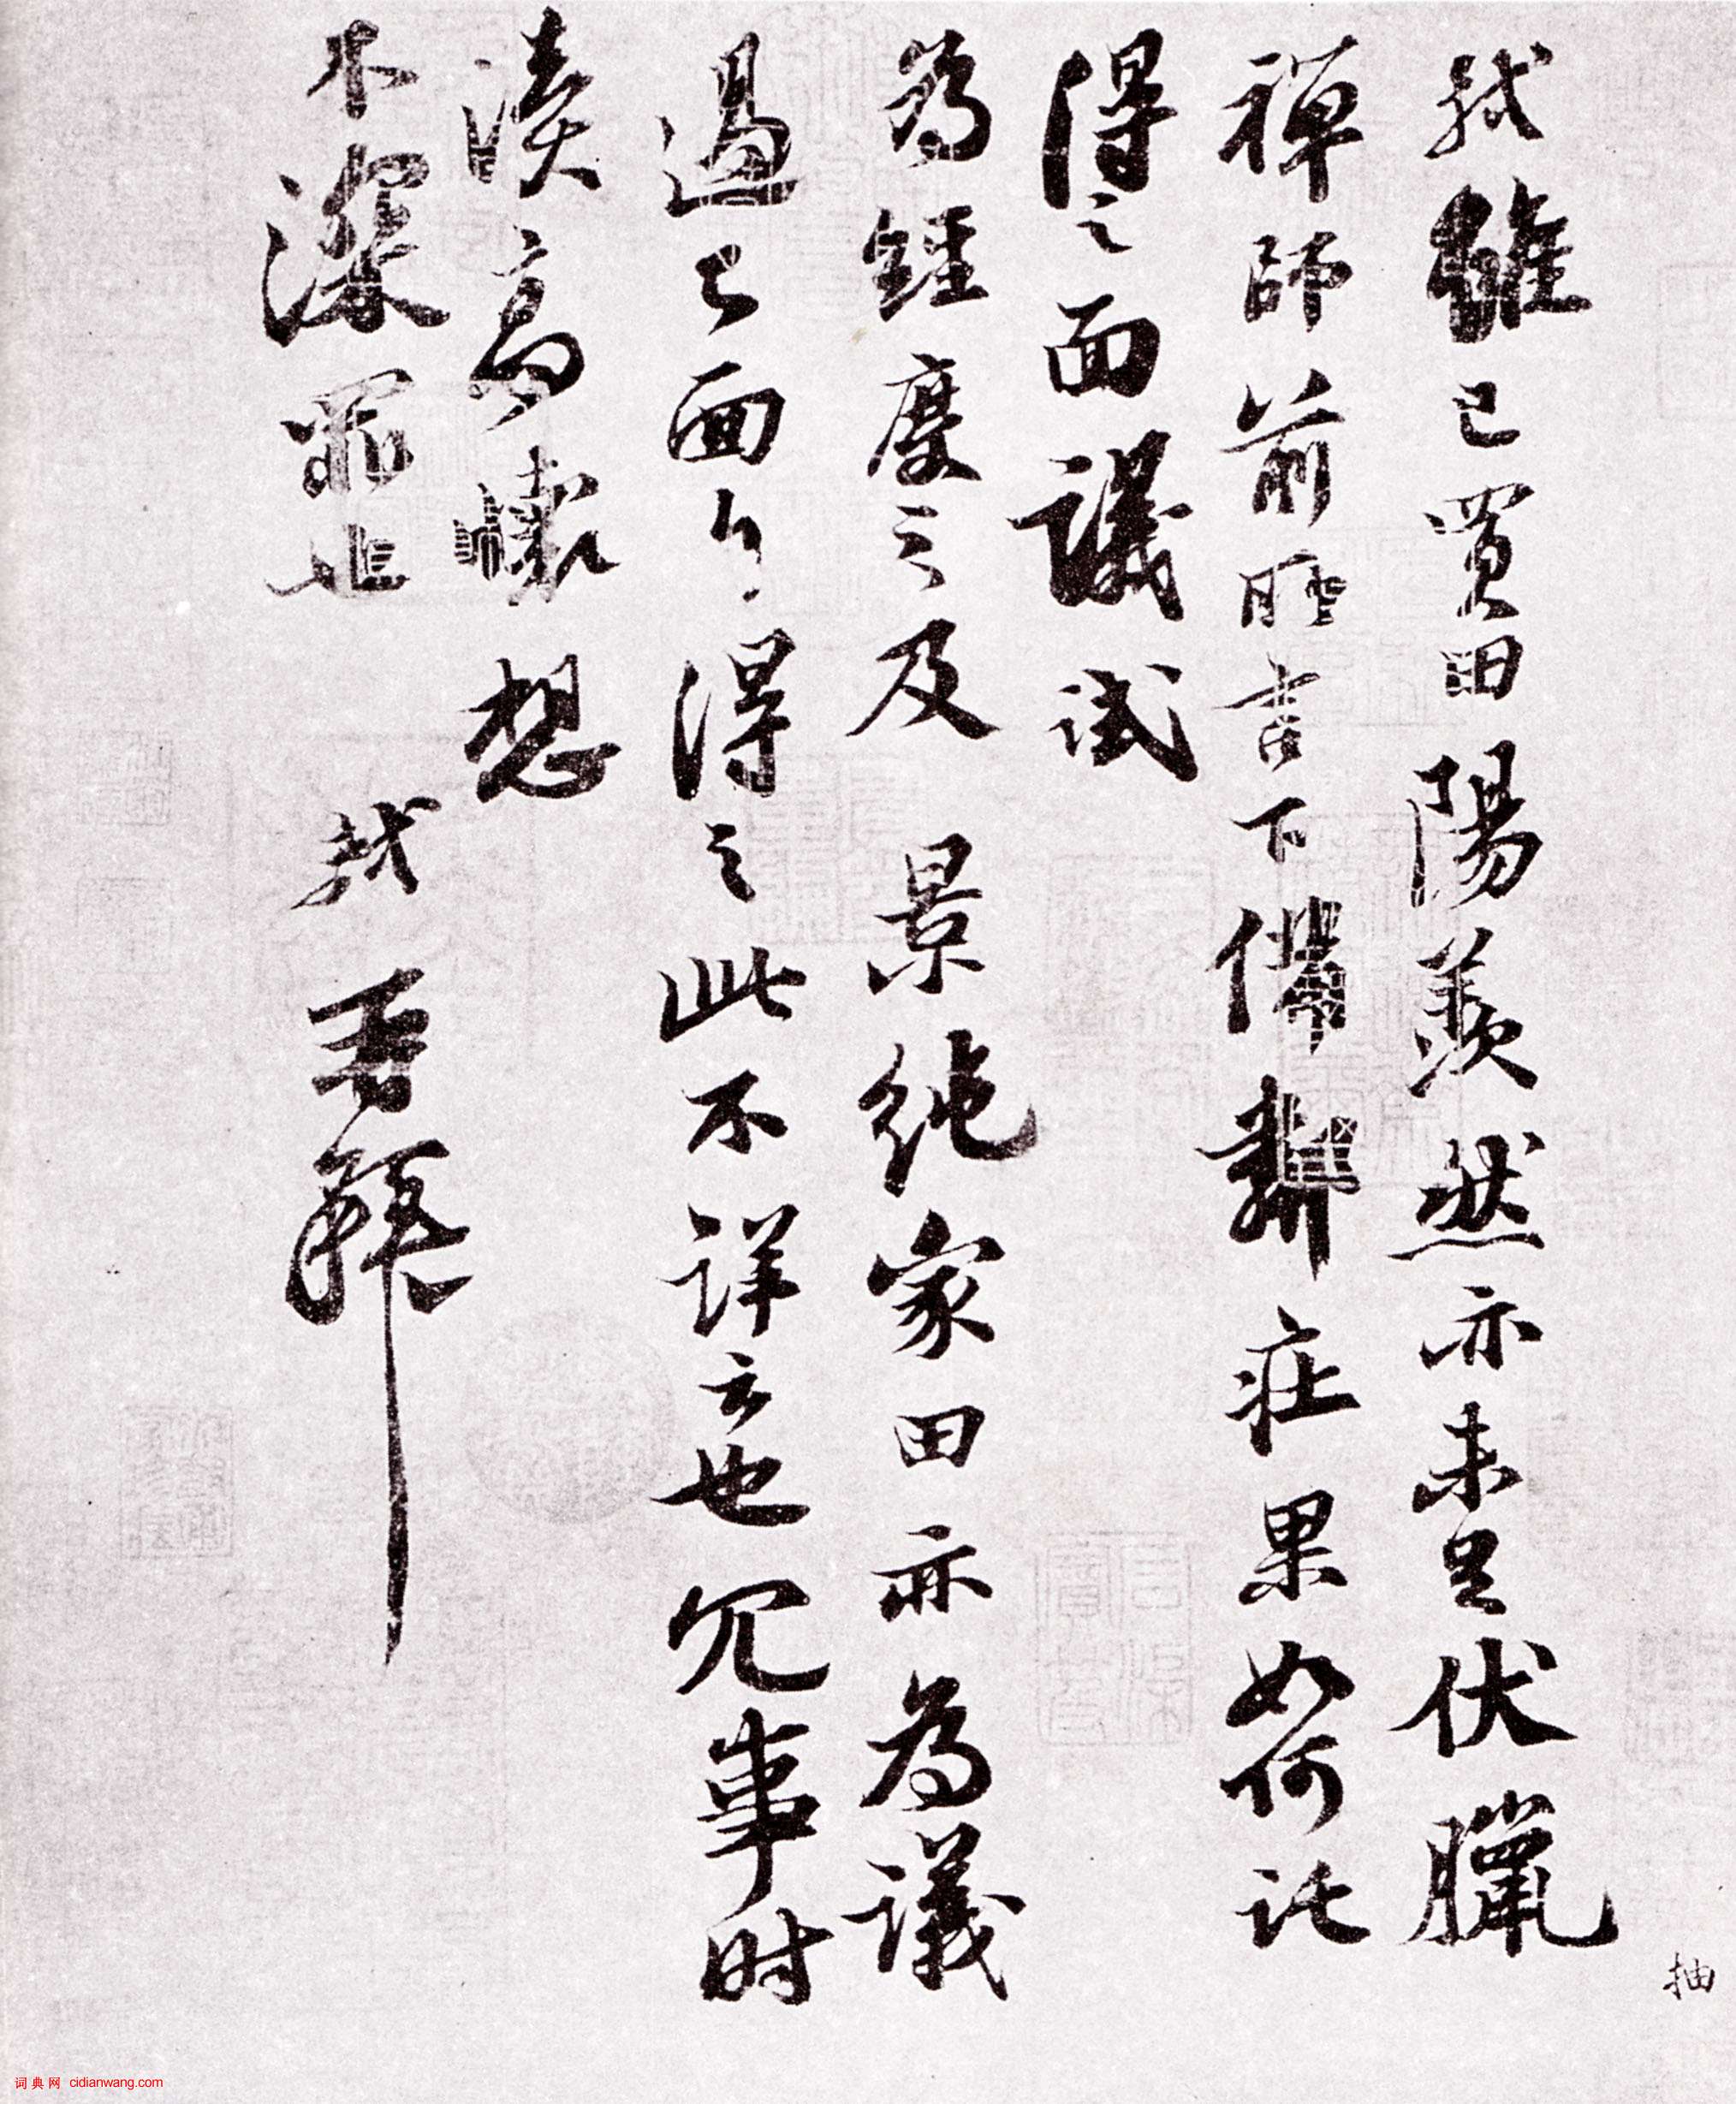 軾雖已買田陽羨然亦未足伏臘
禪師前所言下備鄰莊果如何託
得之面議試
為經度之及景純家田亦為議
過已面白得之此不詳云也冗事時
瀆高懷想
不深罪也 軾再拜
抽
词典网 cidianwang.com